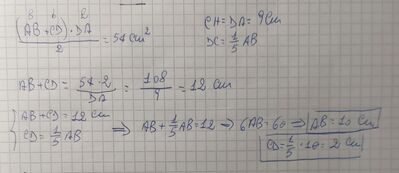 B b h
(AB+CD)·DA / 2 = 54 cm²
CH=DA=9cm
DC=1/5 AB
AB+CD= 54·2 / DA = 108 / 9 = 12 cm
{ AB+CD=12 cm
CD=1/5 AB
=> AB+1/5 AB=12 → 6AB=60 => AB=10 cm
CD=1/5·10=2 cm